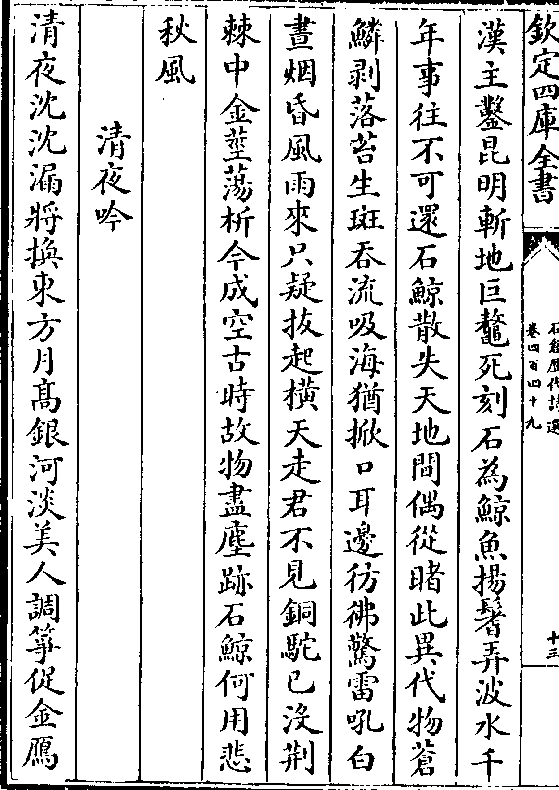 欽定四庫全書
石倉歷代詩選
卷四百四十九
十三
漢主鑿昆明斬地巨鼇死刻石為鯨魚揚鬐弄波水千
年事往不可還石鯨散失天地間偶從睹此異代物蒼
鱗剥落苔生斑吞流吸海猶掀口耳邊彷彿驚雷吼白
晝烟昏風雨來只疑抜起橫天走君不見銅駝已沒荆
棘中金莖蕩析今成空古時故物盡塵跡石鯨何用悲
秋風
清夜吟
清夜沈沈漏將換東方月髙銀河淡美人調箏促金鴈